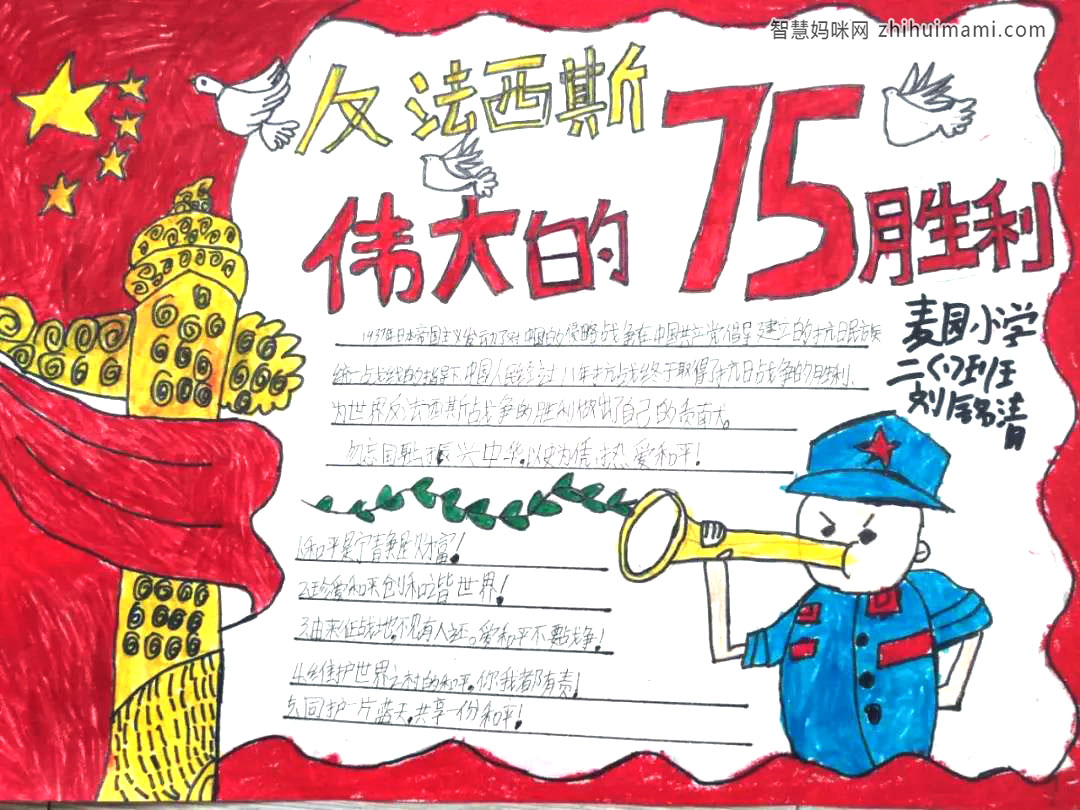 智慧妈咪网 zhihuimami.com
反法西斯
75
伟大的
月胜利
麦园小学
二(7)班
刘锦清
1937年日本帝国主义发动了对中国的侵略战争在中国共产党倡导建立的抗日民族
统一战线的指导下,中国人民经过八年抗战终于取得了抗日战争的胜利.
为世界反法西斯战争的胜利做出了自己的贡献.
勿忘国耻,振兴中华,以史为借,热爱和平!
1.和平是宁静是财富!
2.珍爱和平创和谐世界!
3.由来征战地,不见有人还。爱和平不要战争!
4.维护世界之村的和平,你我都有责!
5.同护一片蓝天,共享一份和平!